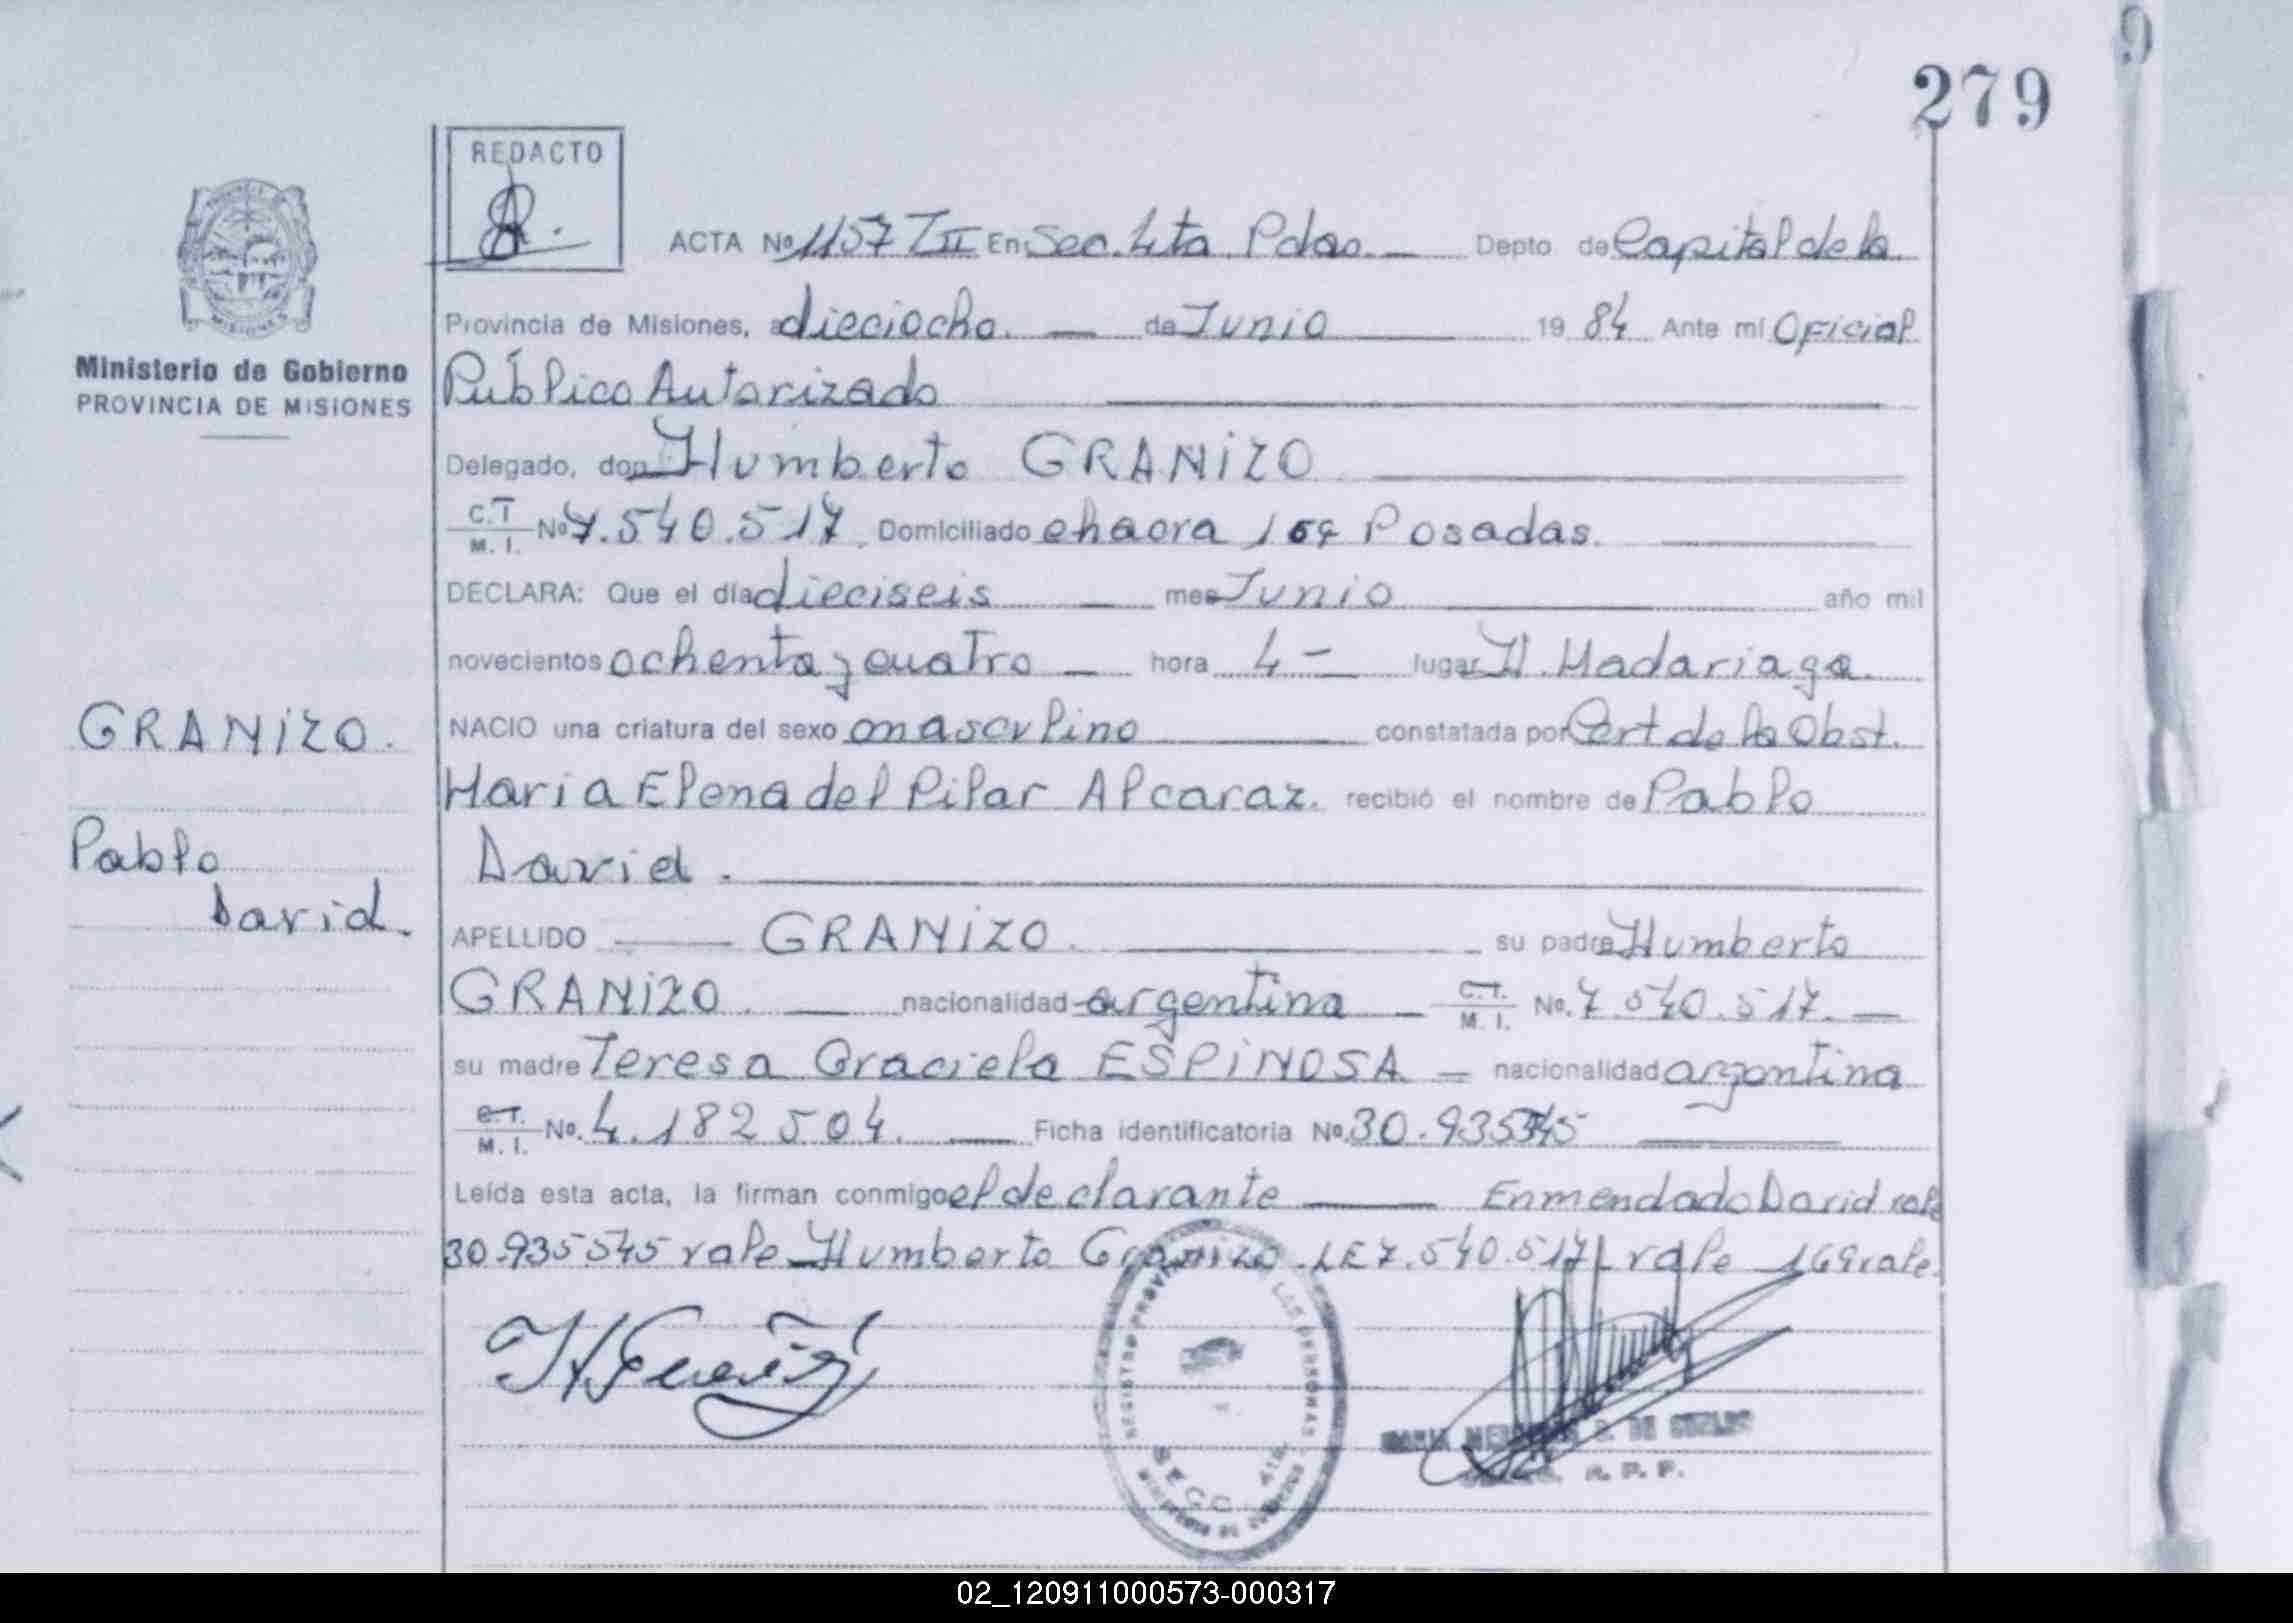 279
REDACTO
ACTA Nº 1157 TII En Sec. 4ta Pdas. Depto de Capital de la
Provincia de Misiones, a dieciocho. de Junio 19 84 Ante mí Oficial
Ministerio de Gobierno
PROVINCIA DE MISIONES
Público Autorizado
Delegado, don Humberto GRANIZO
C.I
M. I. Nº 7.540.517 Domiciliado chacra 169 Posadas.
DECLARA: Que el día dieciseis mes Junio año mil
novecientos ochenta y cuatro hora 4 – lugar H. Madariaga.
GRANIZO.
NACIO una criatura del sexo masculino constatada por Cert de la Obst.
Maria Elena del Pilar Alcaraz. recibió el nombre de Pablo
Pablo
David.
David.
APELLIDO GRANIZO. su padre Humberto
GRANIZO. nacionalidad argentina C.I.
M. I. No. 7.540.517.
su madre Teresa Graciela ESPINOSA nacionalidad argentina
C.I.
M. I. No. 4.182504. Ficha identificatoria Nº 30.935545
Leída esta acta, la firman conmigo el declarante Enmendado David vale
30.935545 vale Humberto Granizo. LE 7.540.517 vale 169 vale.
REGISTRO PROVINCIAL DE LAS PERSONAS
MINISTERIO DE GOBIERNO
R. P. P.
02_120911000573-000317